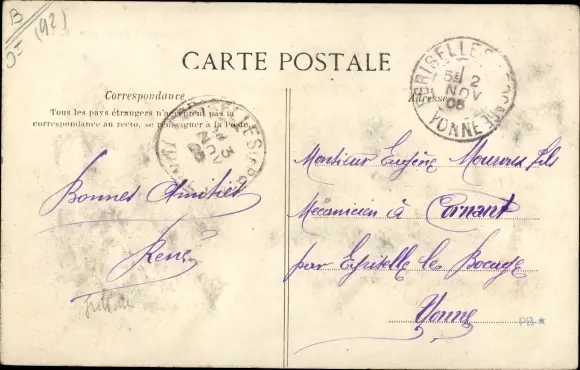 B
(92)
CARTE POSTALE
Correspondance
Tous les pays étrangers n'acceptent pas la
correspondance au recto, se renseigner à la Poste.
Adresse
5E 2
NOV
05
YONNE
3
NOV
05
Bonnes Amitiés
René
Monsieur Eugène fils
Mécanicien à Cornant
par Egriselle le Bocage
Yonne
PB